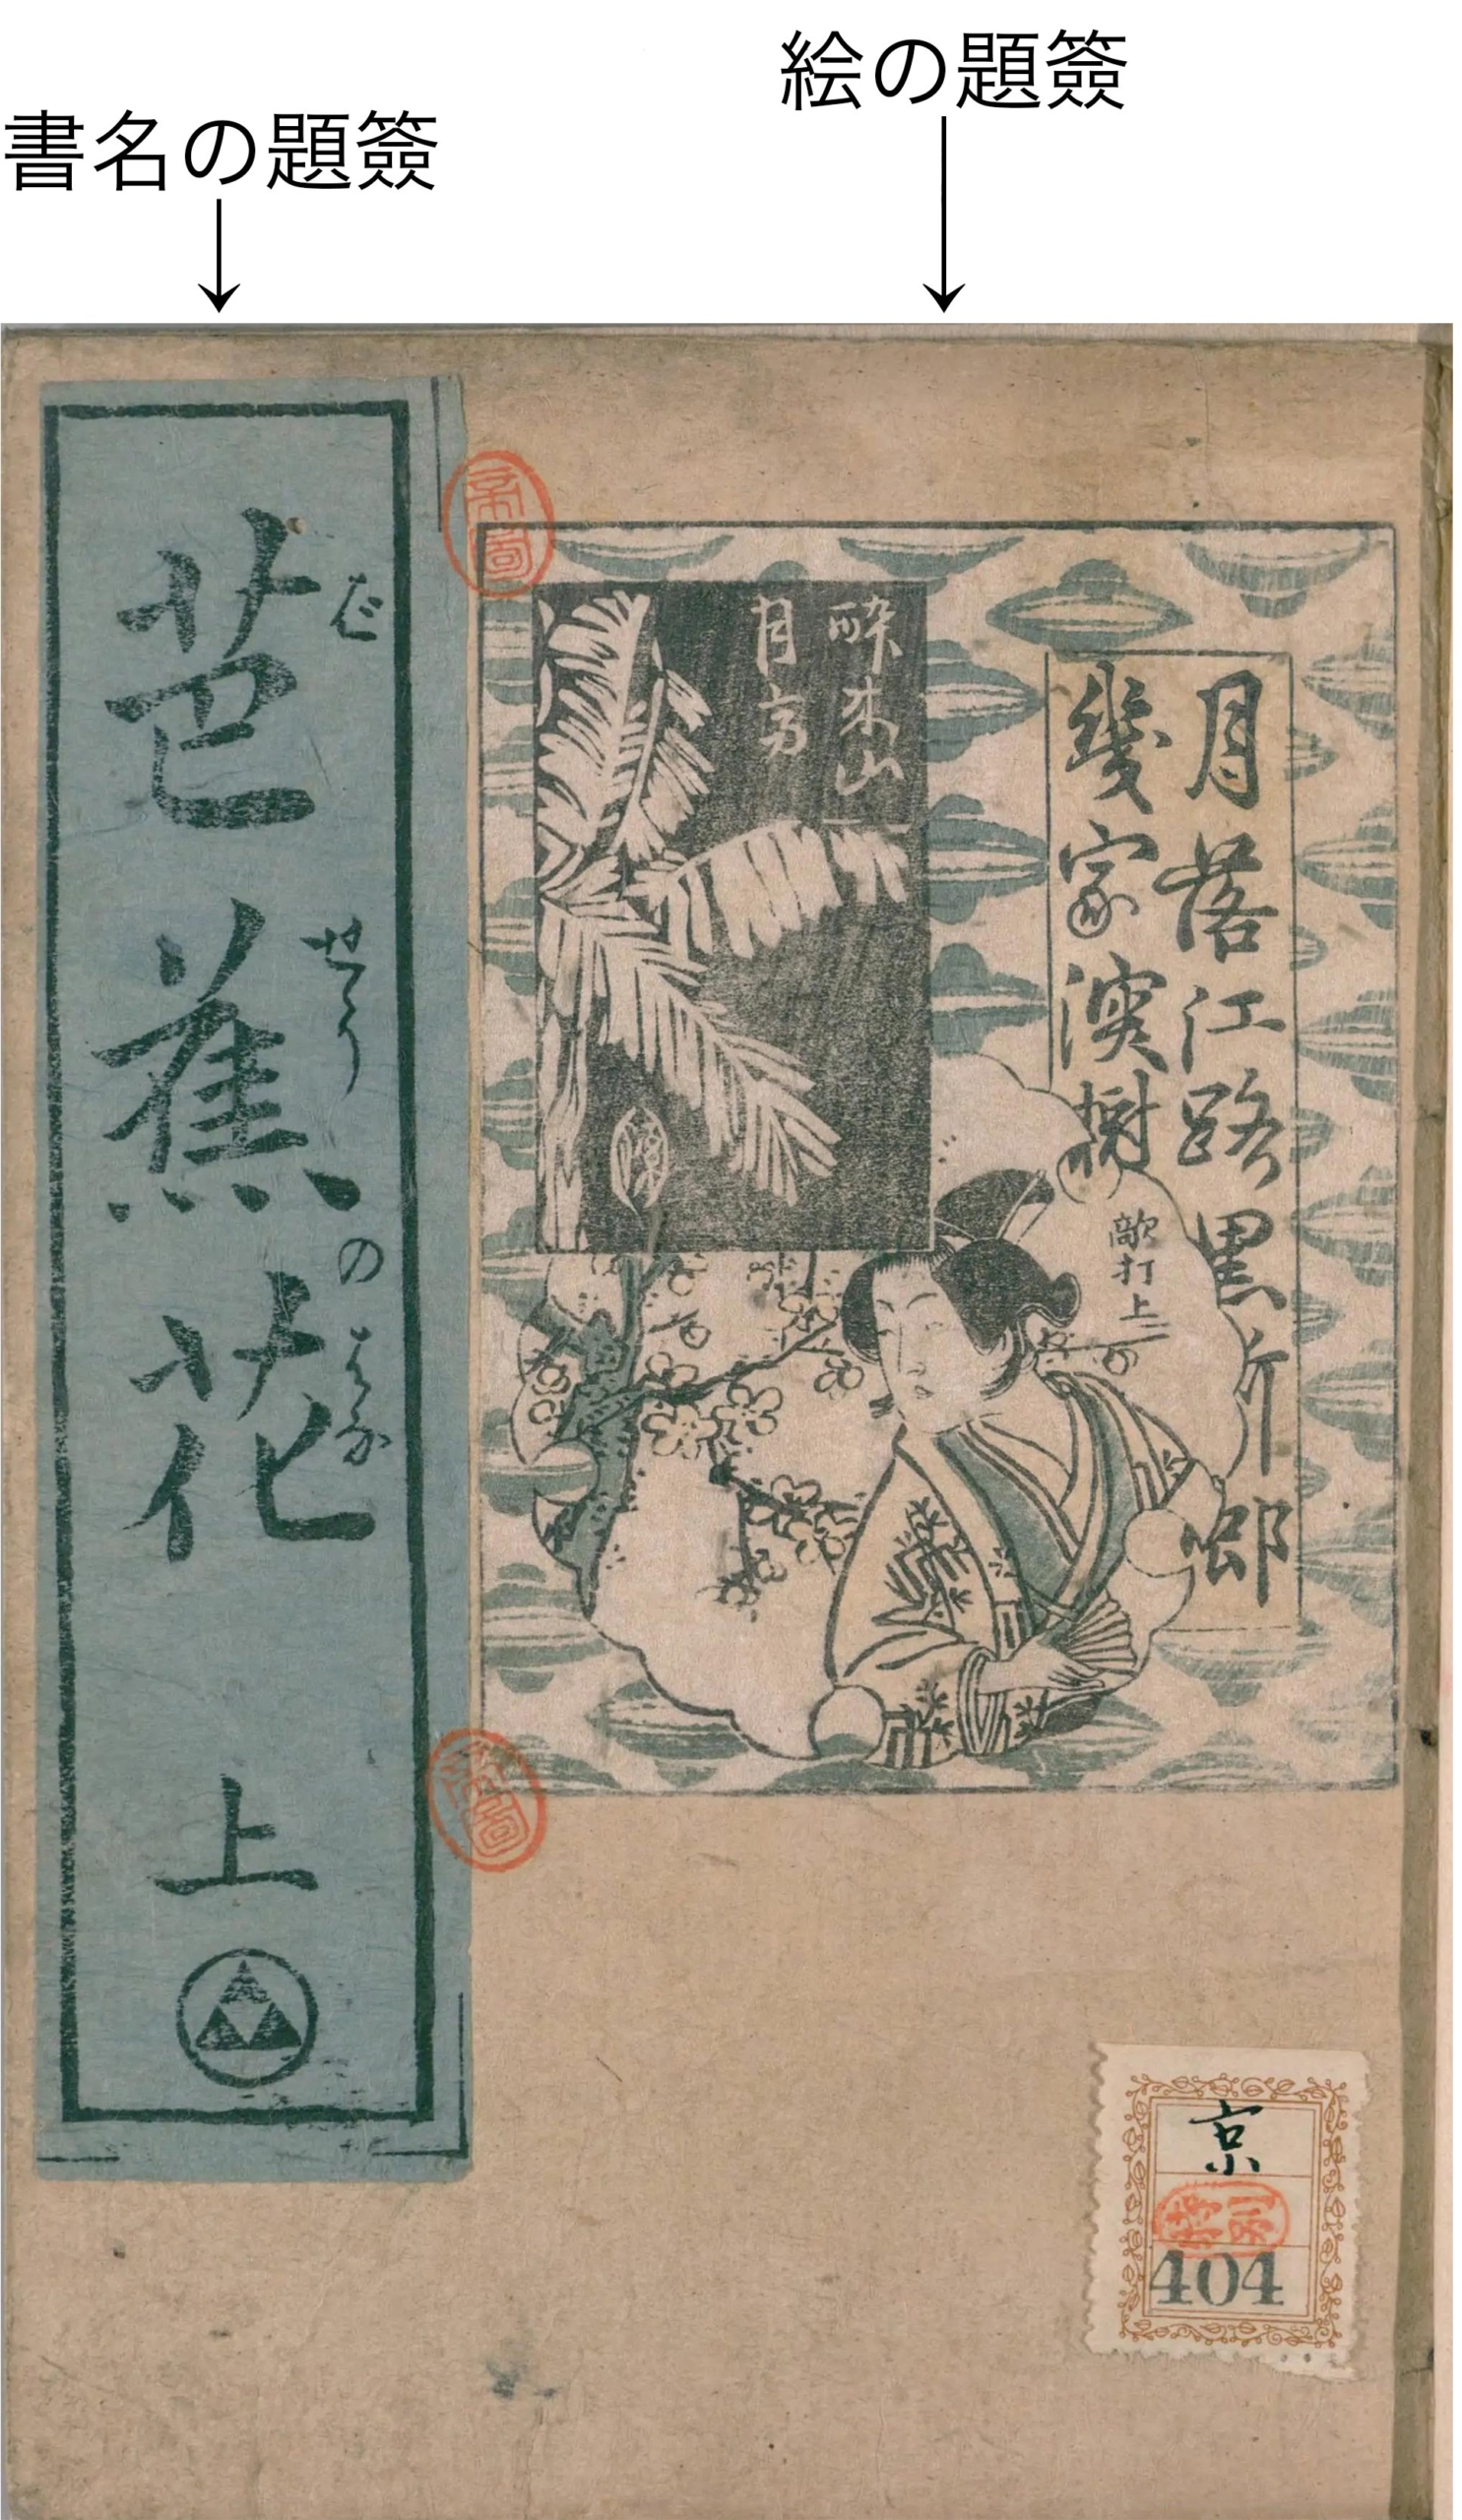 絵の題簽
書名の題簽
芭蕉の花 上
ばせうのはな
月落江路黒
幾家深樹
酔来山
月高
敵打上
京
404